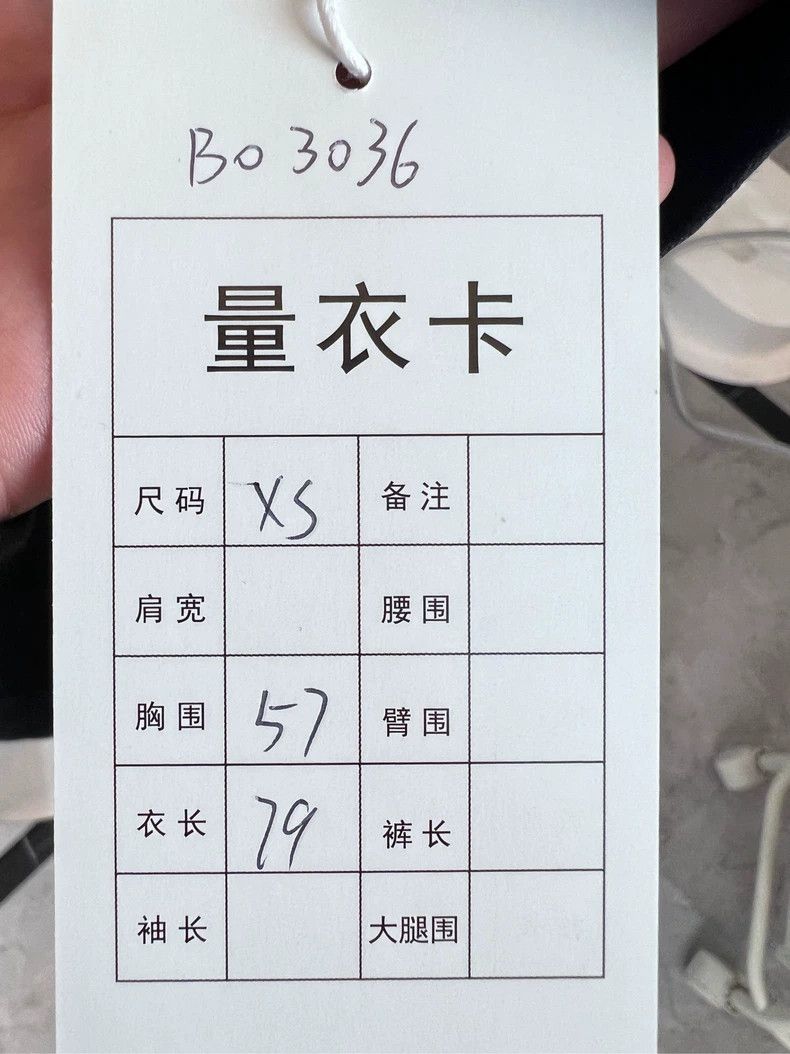 B03036
量衣卡
尺码 XS 备注
肩宽 腰围
胸围 57 臂围
衣长 79 裤长
袖长 大腿围